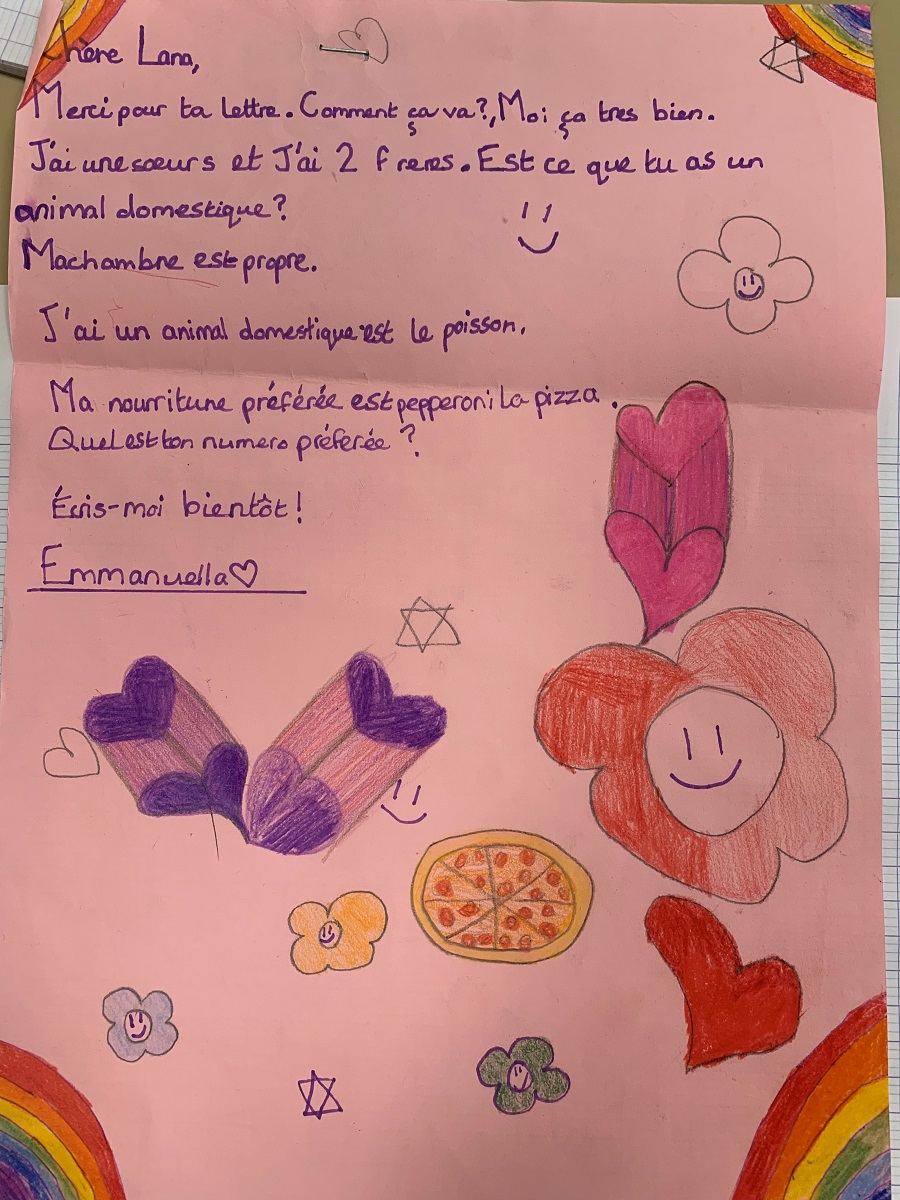 Chère Lana,
Merci pour ta lettre. Comment ça va?, Moi ça tres bien.
J'ai une sœurs et J'ai 2 freres. Est ce que tu as un
animal domestique?
Ma chambre est propre.
J'ai un animal domestique est le poisson.
Ma nourriture préférée est pepperoni La pizza.
Quel est ton numero préferée?
Écris-moi bientôt!
Emmanuella♡